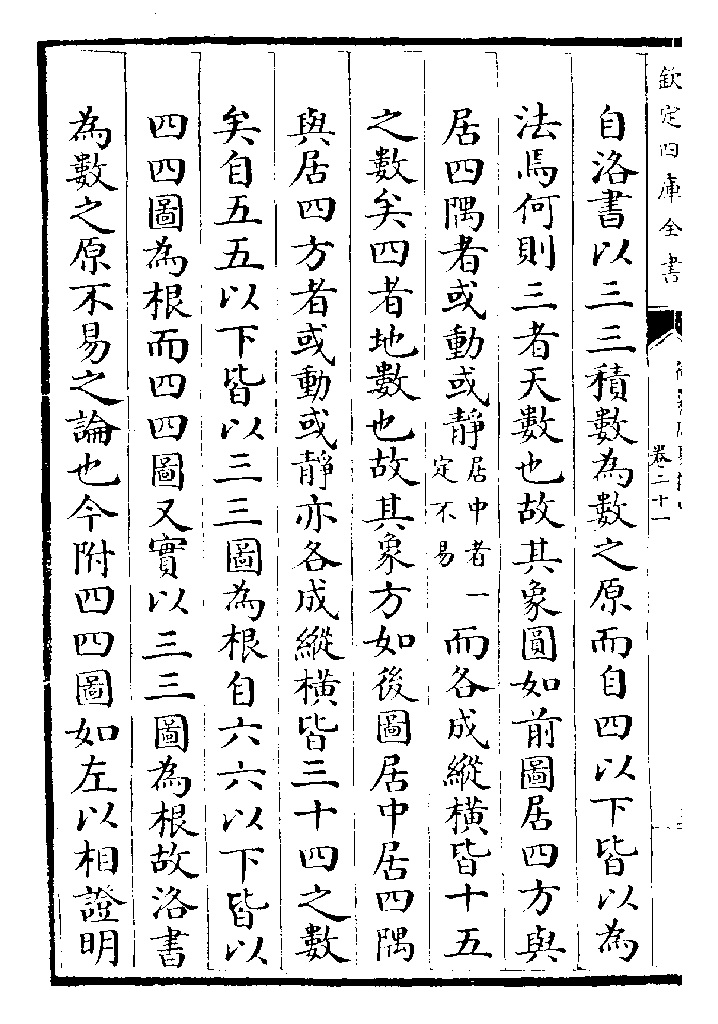 欽定四庫全書
卷二十一
自洛書以三三積數為數之原而自四以下皆以為
法焉何則三者天數也故其象圓如前圖居四方與
居四隅者或動或靜居中者一定不易而各成縱橫皆十五
之數矣四者地數也故其象方如後圖居中居四隅
與居四方者或動或靜亦各成縱橫皆三十四之數
矣自五五以下皆以三三圖為根自六六以下皆以
四四圖為根而四四圖又實以三三圖為根故洛書
為數之原不易之論也今附四四圖如左以相證明